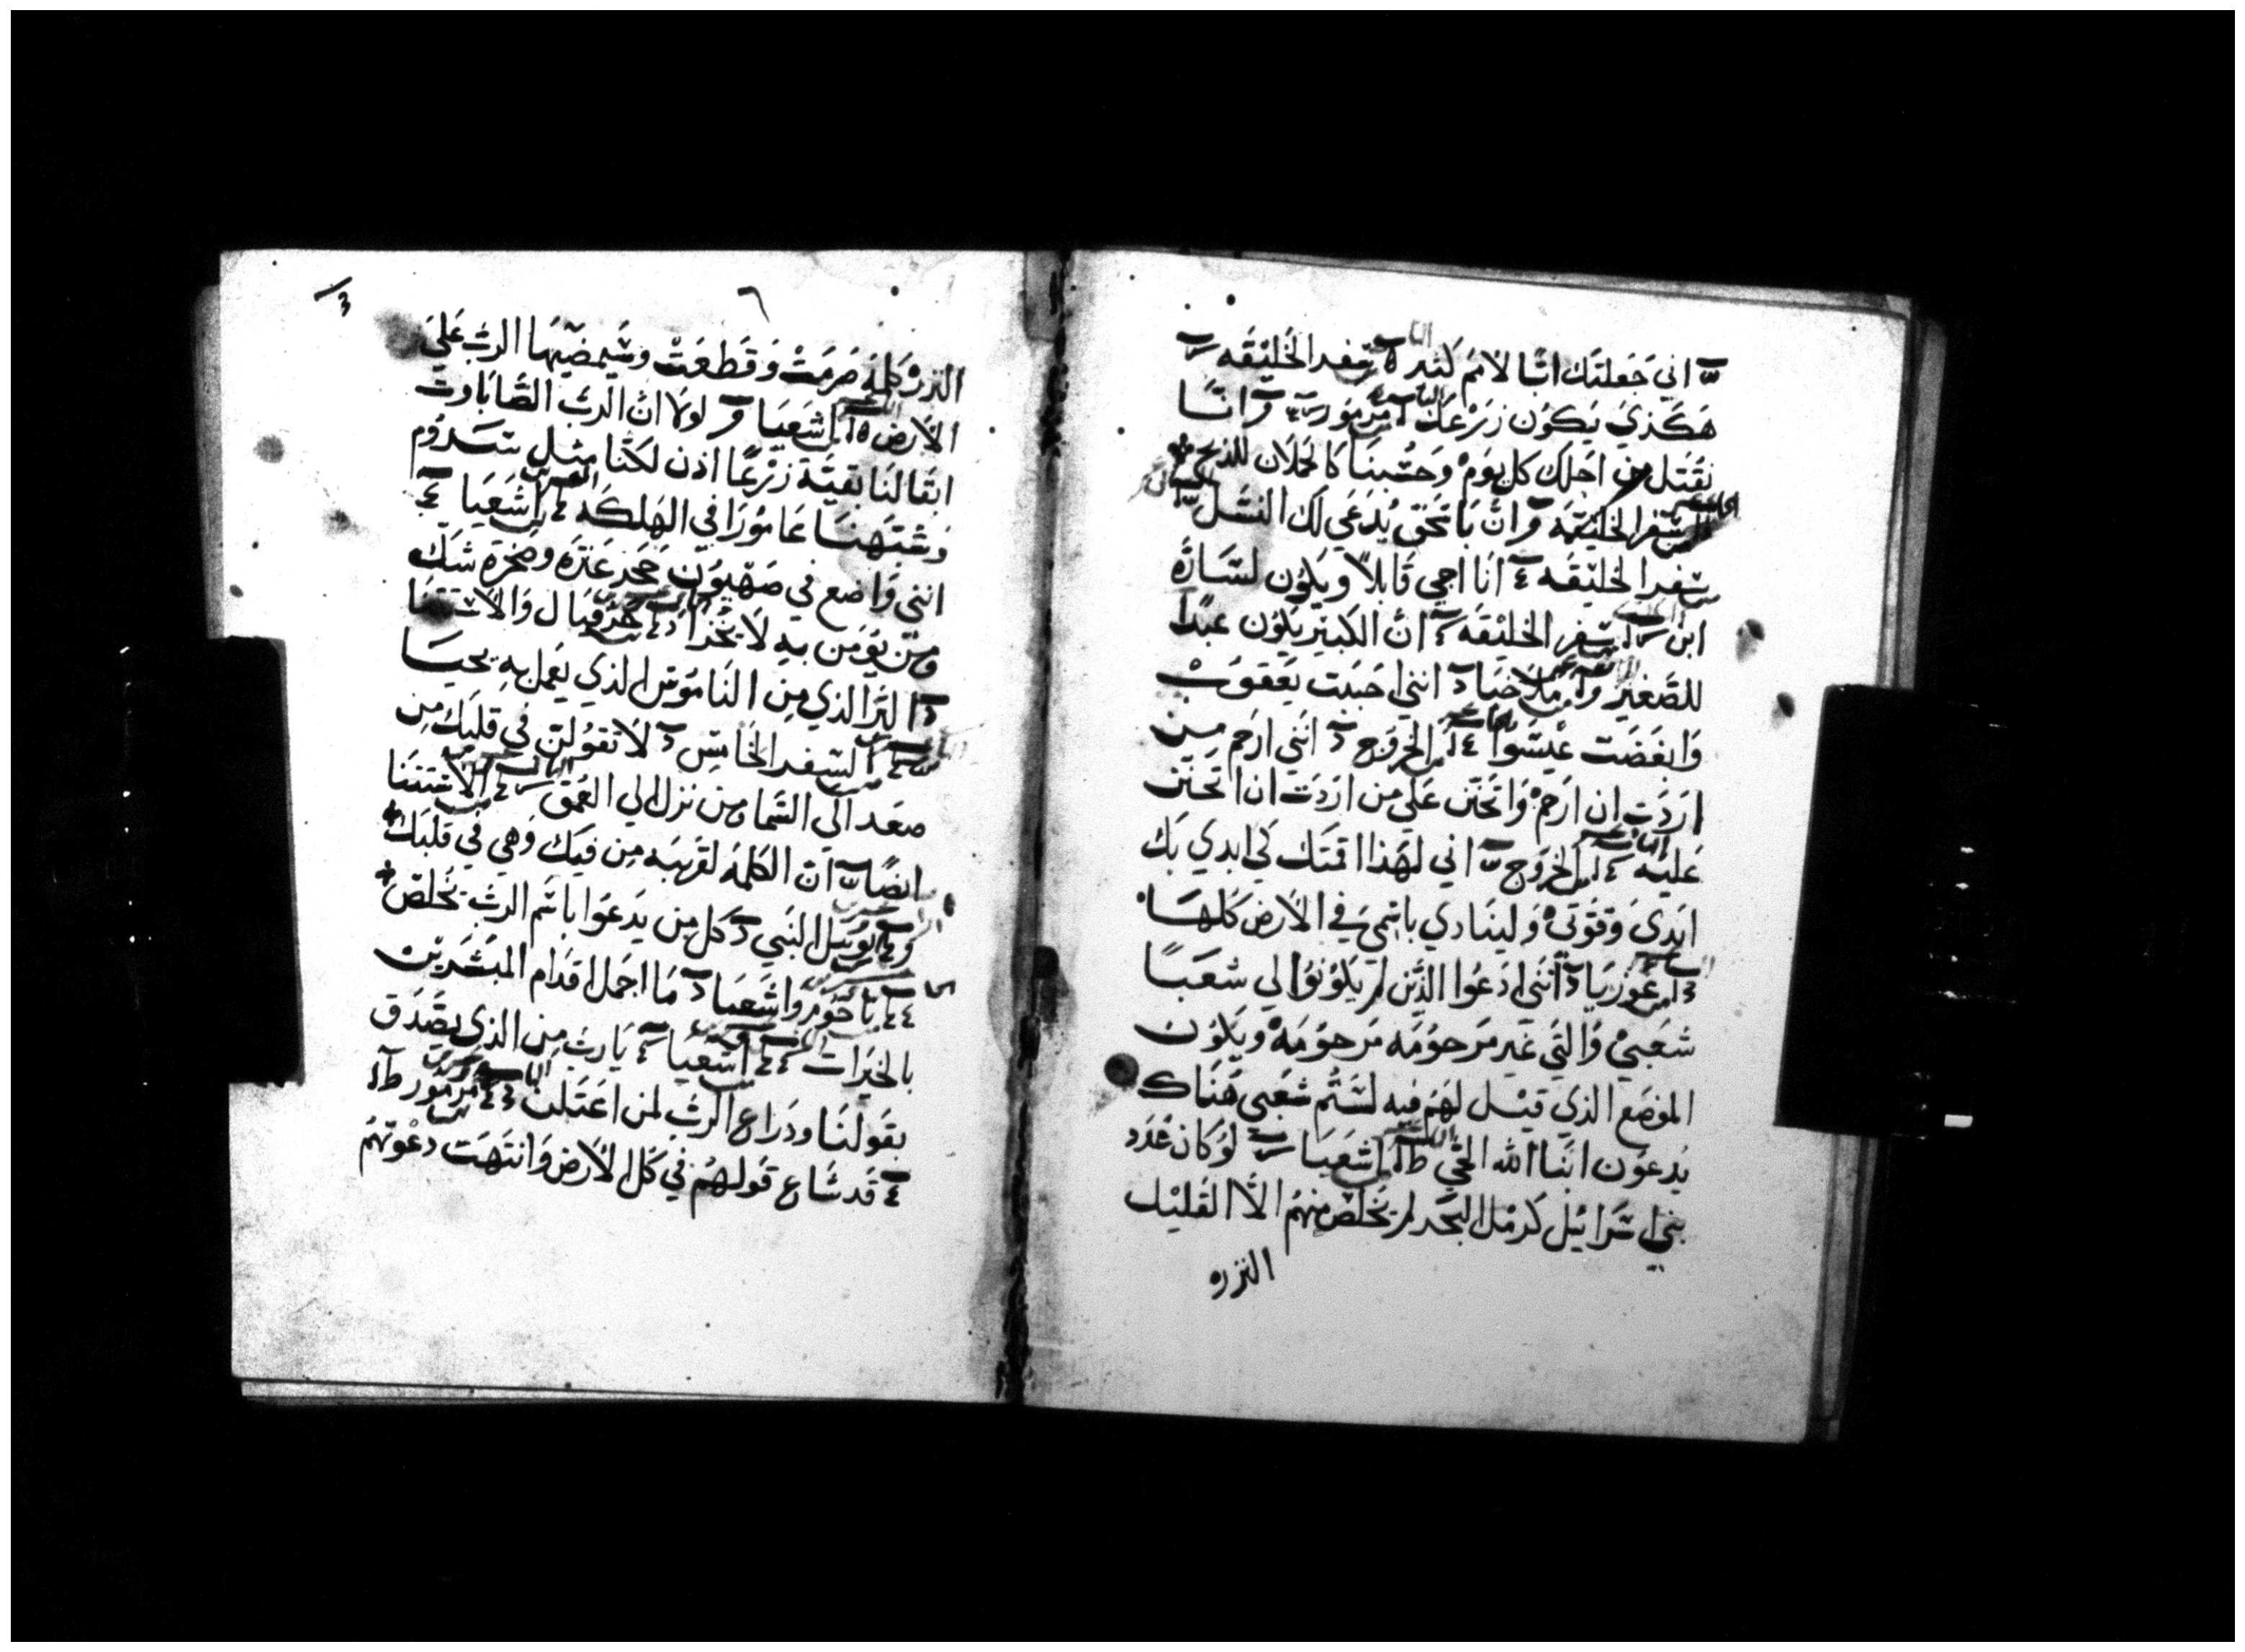 اني جعلتك ابًا لامم كثيره سفر الخليقه
هكذي يكون زرعك مزمور وانّا
نقتل من اجلك كل يوم وحسبنا كالحملان للذبح
سفر الخليقه وان باسحق يدعي لك النسل
سفر الخليقه انا اجي قابلاً ويكون لسارة
ابن سفر الخليقه ان الكبير يكون عبدًا
للصغير ملاخيا انني احببت يعقوب
وابغضت عيسوا الخروج انني ارحم من
اردت ان ارحم واتحنن علي من اردت ان اتحنن
عليه الخروج اني لهذا اقمتك كي ابدي بك
ايدي وقوتي ولينادي باسمي في الارض كلها
هوزيا انني ادعوا الذين لم يكونوا لي شعبًا
شعبي والتي غير مرحومه مرحومه ويكون
الموضع الذي قيل لهم فيه لستم شعبي هناك
يدعون ابنا الله الحي اشعيا لو كان عدد
بني اسرائيل كرمل البحر لم يخلص منهم الاّ القليل
النزره
٦
النزره كلمة صرمت وقطعت وسيمضيها الرب علي
الارض اشعيا لولا ان الرب الصاباوت
ابقا لنا بقية زرعًا اذن لكنا مثل سدوم
وشبهنا عامورا في الهلكه اشعيا
انني واضع في صهيون حجر عثره وصخرة شك
ومن يومن به لا يخزا حزقيال والاستثنا
البر الذي من الناموس الذي يعمل به يحيا
السفر الخامس لا تقولن في قلبك من
صعد الي السما ومن نزل الي العمق الاستثنا
ايضًا ان الكلمة لقريبه من فيك وهي في قلبك
يوييل النبي كل من يدعوا باسم الرب يخلص
ناحوم واشعيا ما اجمل اقدام المبشرين
بالخيرات اشعيا يارب من الذي يصدق
بقولنا ودراع الرب لمن اعتلن مزمور
قد شاع قولهم في كل الارض وانتهت دعوتهم